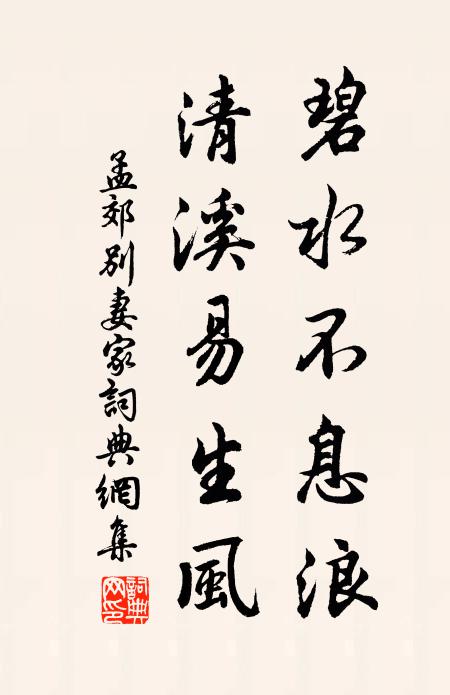 碧水不息浪
清溪易生風
孟郊別妻家詞典網集
詞典網印